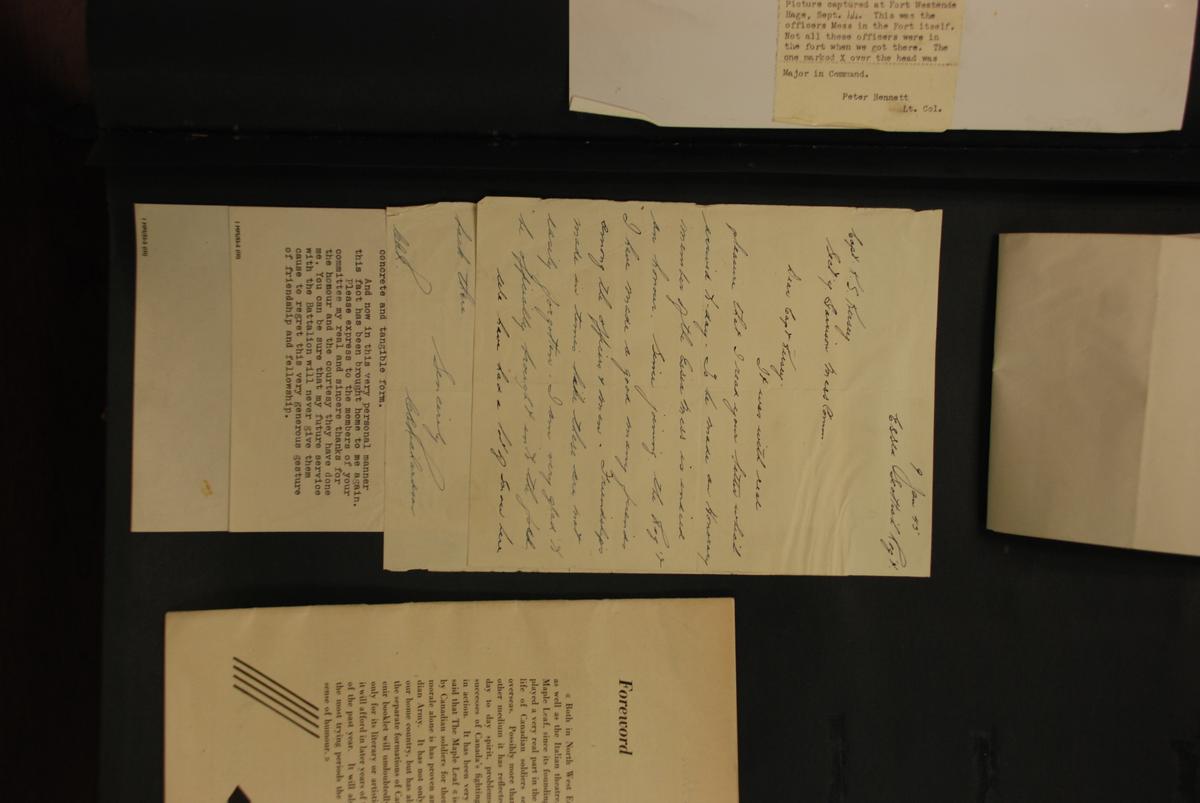 Picture captured at Fort Westende
Hage, Sept. 44. This was the
officers Mess in the Fort itself.
Not all these officers were in
the fort when we got there. The
one marked X over the head was
Major in Command.
Peter Bennett
Lt. Col.
9 Jan 45
Essex Scottish Reg't
Capt
Sec'y Garrison Mess Comm
Dear Capt
It was with real
pleasure that I read your letter which
arrived today. To be made an Honorary
member of the Essex Mess is indeed
an honour. Since joining the Reg't
I have made a good many friends
among the officers & men. Friendships
made in times like these are not
easily forgotten. I am very glad to
be officially brought into the fold.
We have had a big snow here
back there
Sincerely
concrete and tangible form.
And now in this very personal manner
this fact has been brought home to me again.
Please express to the members of your
committee my real and sincere thanks for
the honour and the courtesy they have done
me. You can be sure that my future service
with the Battalion will never give them
cause to regret this very generous gesture
of friendship and fellowship.
Foreword
« Both in North West E
as well as the Italian theatre
Maple Leaf, since its founding
played a very real part in the
life of Canadian soldiers se
overseas. Possibly more than
other medium it has reflecte
day to day spirit, problems
successes of Canada's fighting
in action. It has been very
said that The Maple Leaf « is
by Canadian soldiers for ther
morale alone is has proven an
dian Army. It has not only
our home country, but has al
the separate formations of Ca
enir booklet will undoubtedl
only for its literary or artisti
it will afford in later years of
of the past year. It will al
the most trying periods the
sense of humour. »